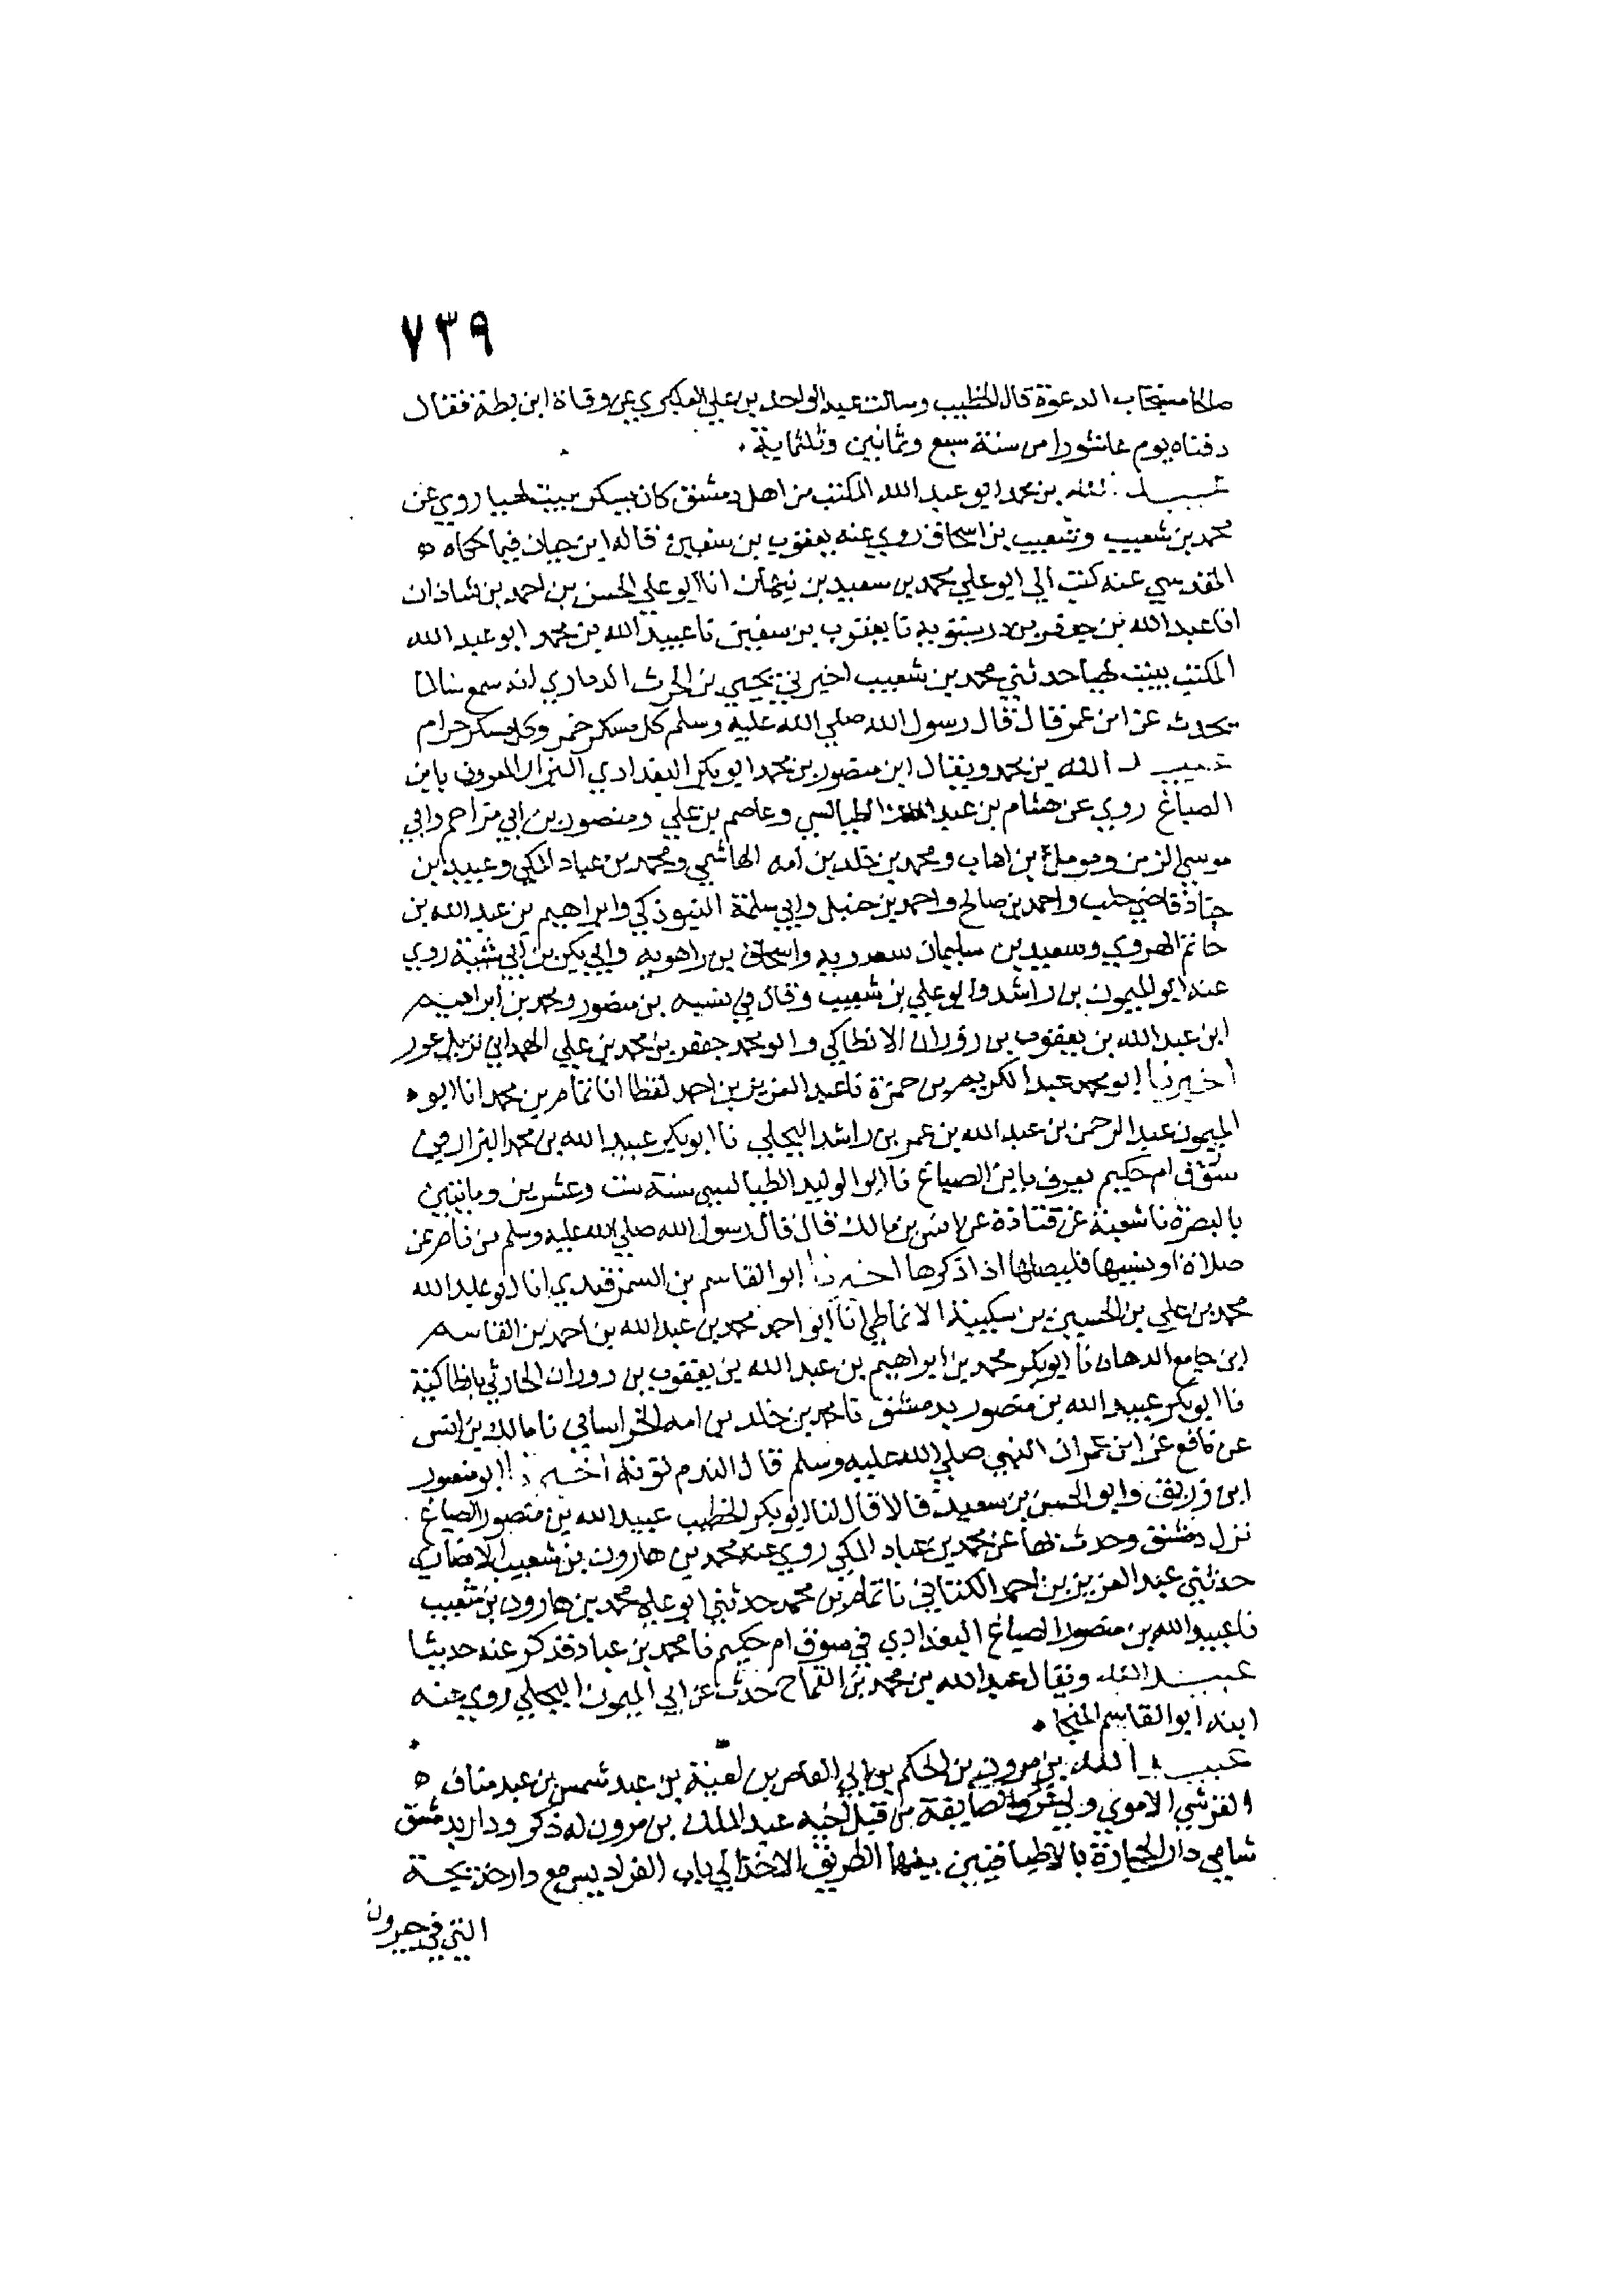 ٧٣٩
صالحا مستجاب الدعوة قال الخطيب وسالت عبد الواحد بن علي العكبري عن وفاة ابن بطة فقال
دفناه يوم عاشورا من سنة سبع وثمانين وثلثماية
عبيد الله بن محمد ابو عبد الله المكتب من اهل دمشق كان يسكن ببيت لهيا روي عن
محمد بن شعيب وشعيب بن اسحاق روي عنه يعقوب بن سفين وقاله ابن حبان فيما حكاه
المقدسي عنه كتب الي ابو علي محمد بن سعيد بن نبهان انا ابو علي الحسن بن احمد بن شاذان
انا عبد الله بن جعفر بن درستويه نا يعقوب بن سفين نا عبيد الله بن محمد ابو عبد الله
المكتب ببيت لهيا حدثني محمد بن شعيب اخبرني يحيي بن الحرث الدماري انه سمع سالما
يحدث عن ابن عمر قال قال رسول الله صلي الله عليه وسلم كل مسكر خمر وكل مسكر حرام
عبيد الله بن محمد ويقال ابن منصور بن محمد ابو بكر البغدادي البزار المعروف بابن
الصباغ روي عن هشام بن عبد الملك الطيالسي وعاصم بن علي ومنصور بن ابي مزاحم وابي
موسي الزمن ومومل بن اهاب ومحمد بن خلد بن امه الهاشمي ومحمد بن عباد المكي وعبيد بن
جناد قاضي حلب واحمد بن صالح واحمد بن حنبل وابي سلمة التبوذكي وابراهيم بن عبد الله بن
حاتم الهروي وسعيد بن سليمان سعدويه واسحاق بن راهويه وابي بكر بن ابي شيبة روي
عنه ابو الميمون بن راشد وابو علي بن شعيب وقال في نسبه بن منصور ومحمد بن ابراهيم
ابن عبد الله بن يعقوب بن روزان الانطاكي وابو محمد جعفر بن محمد بن علي الهمداني نزيل عور
اخبرنا ابو محمد عبد الكريم بن حمزة نا عبد العزيز بن احمد لفظا انا تمام بن محمد انا ابو
الميمون عبد الرحمن بن عبد الله بن عمر بن راشد البجلي نا ابو بكر عبيد الله بن محمد البزار في
سوق ام حكيم يعرف بابن الصباغ نا ابو الوليد الطيالسي سنة ست وعشرين وماتين
بالبصرة نا شعبة عن قتادة عن انس بن مالك قال قال رسول الله صلي الله عليه وسلم من نام عن
صلاة او نسيها فليصلها اذا ذكرها اخبرنا ابو القاسم بن السمرقندي انا ابو عبد الله
محمد بن علي بن الحسين بن سكينة الانماطي انا ابو احمد محمد بن عبد الله بن احمد بن القاسم
ابن جامع الدهان نا ابو بكر محمد بن ابراهيم بن عبد الله بن يعقوب بن روزان الحارثي بانطاكية
نا ابو بكر عبيد الله بن منصور بدمشق نا محمد بن خلد بن امه الخراساني نا مالك بن انس
عن نافع عن ابن عمر ان النبي صلي الله عليه وسلم قال الندم توبة اخبرنا ابو منصور
ابن زريق وابو الحسن بن سعيد قالا قال لنا ابو بكر الخطيب عبيد الله بن منصور الصباغ
نزل دمشق وحدث بها عن محمد بن عباد المكي روي عنه محمد بن هارون بن شعيب الانصاري
حدثني عبد العزيز بن احمد الكتاني نا تمام بن محمد حدثني ابو علي محمد بن هارون بن شعيب
نا عبيد الله بن منصور الصباغ البغدادي في سوق ام حكيم نا محمد بن عباد فذكر عنه حديثا
عبيد الله ويقال عبد الله بن محمد بن القماح حدث عن ابي الميمون البجلي روي عنه
ابنه ابو القاسم المنجا
عبيد الله بن مرون بن الحكم بن ابي العاص بن امية بن عبد شمس بن عبد مناف
القرشي الاموي ولي غزو الصايفة من قبل اخيه عبد الملك بن مرون له ذكر ودار بدمشق
شامي دار الحجارة بالاطبافيين بينها الطريق الاخذ الي باب الفراديس مع دار خديجة
التي في جيرون